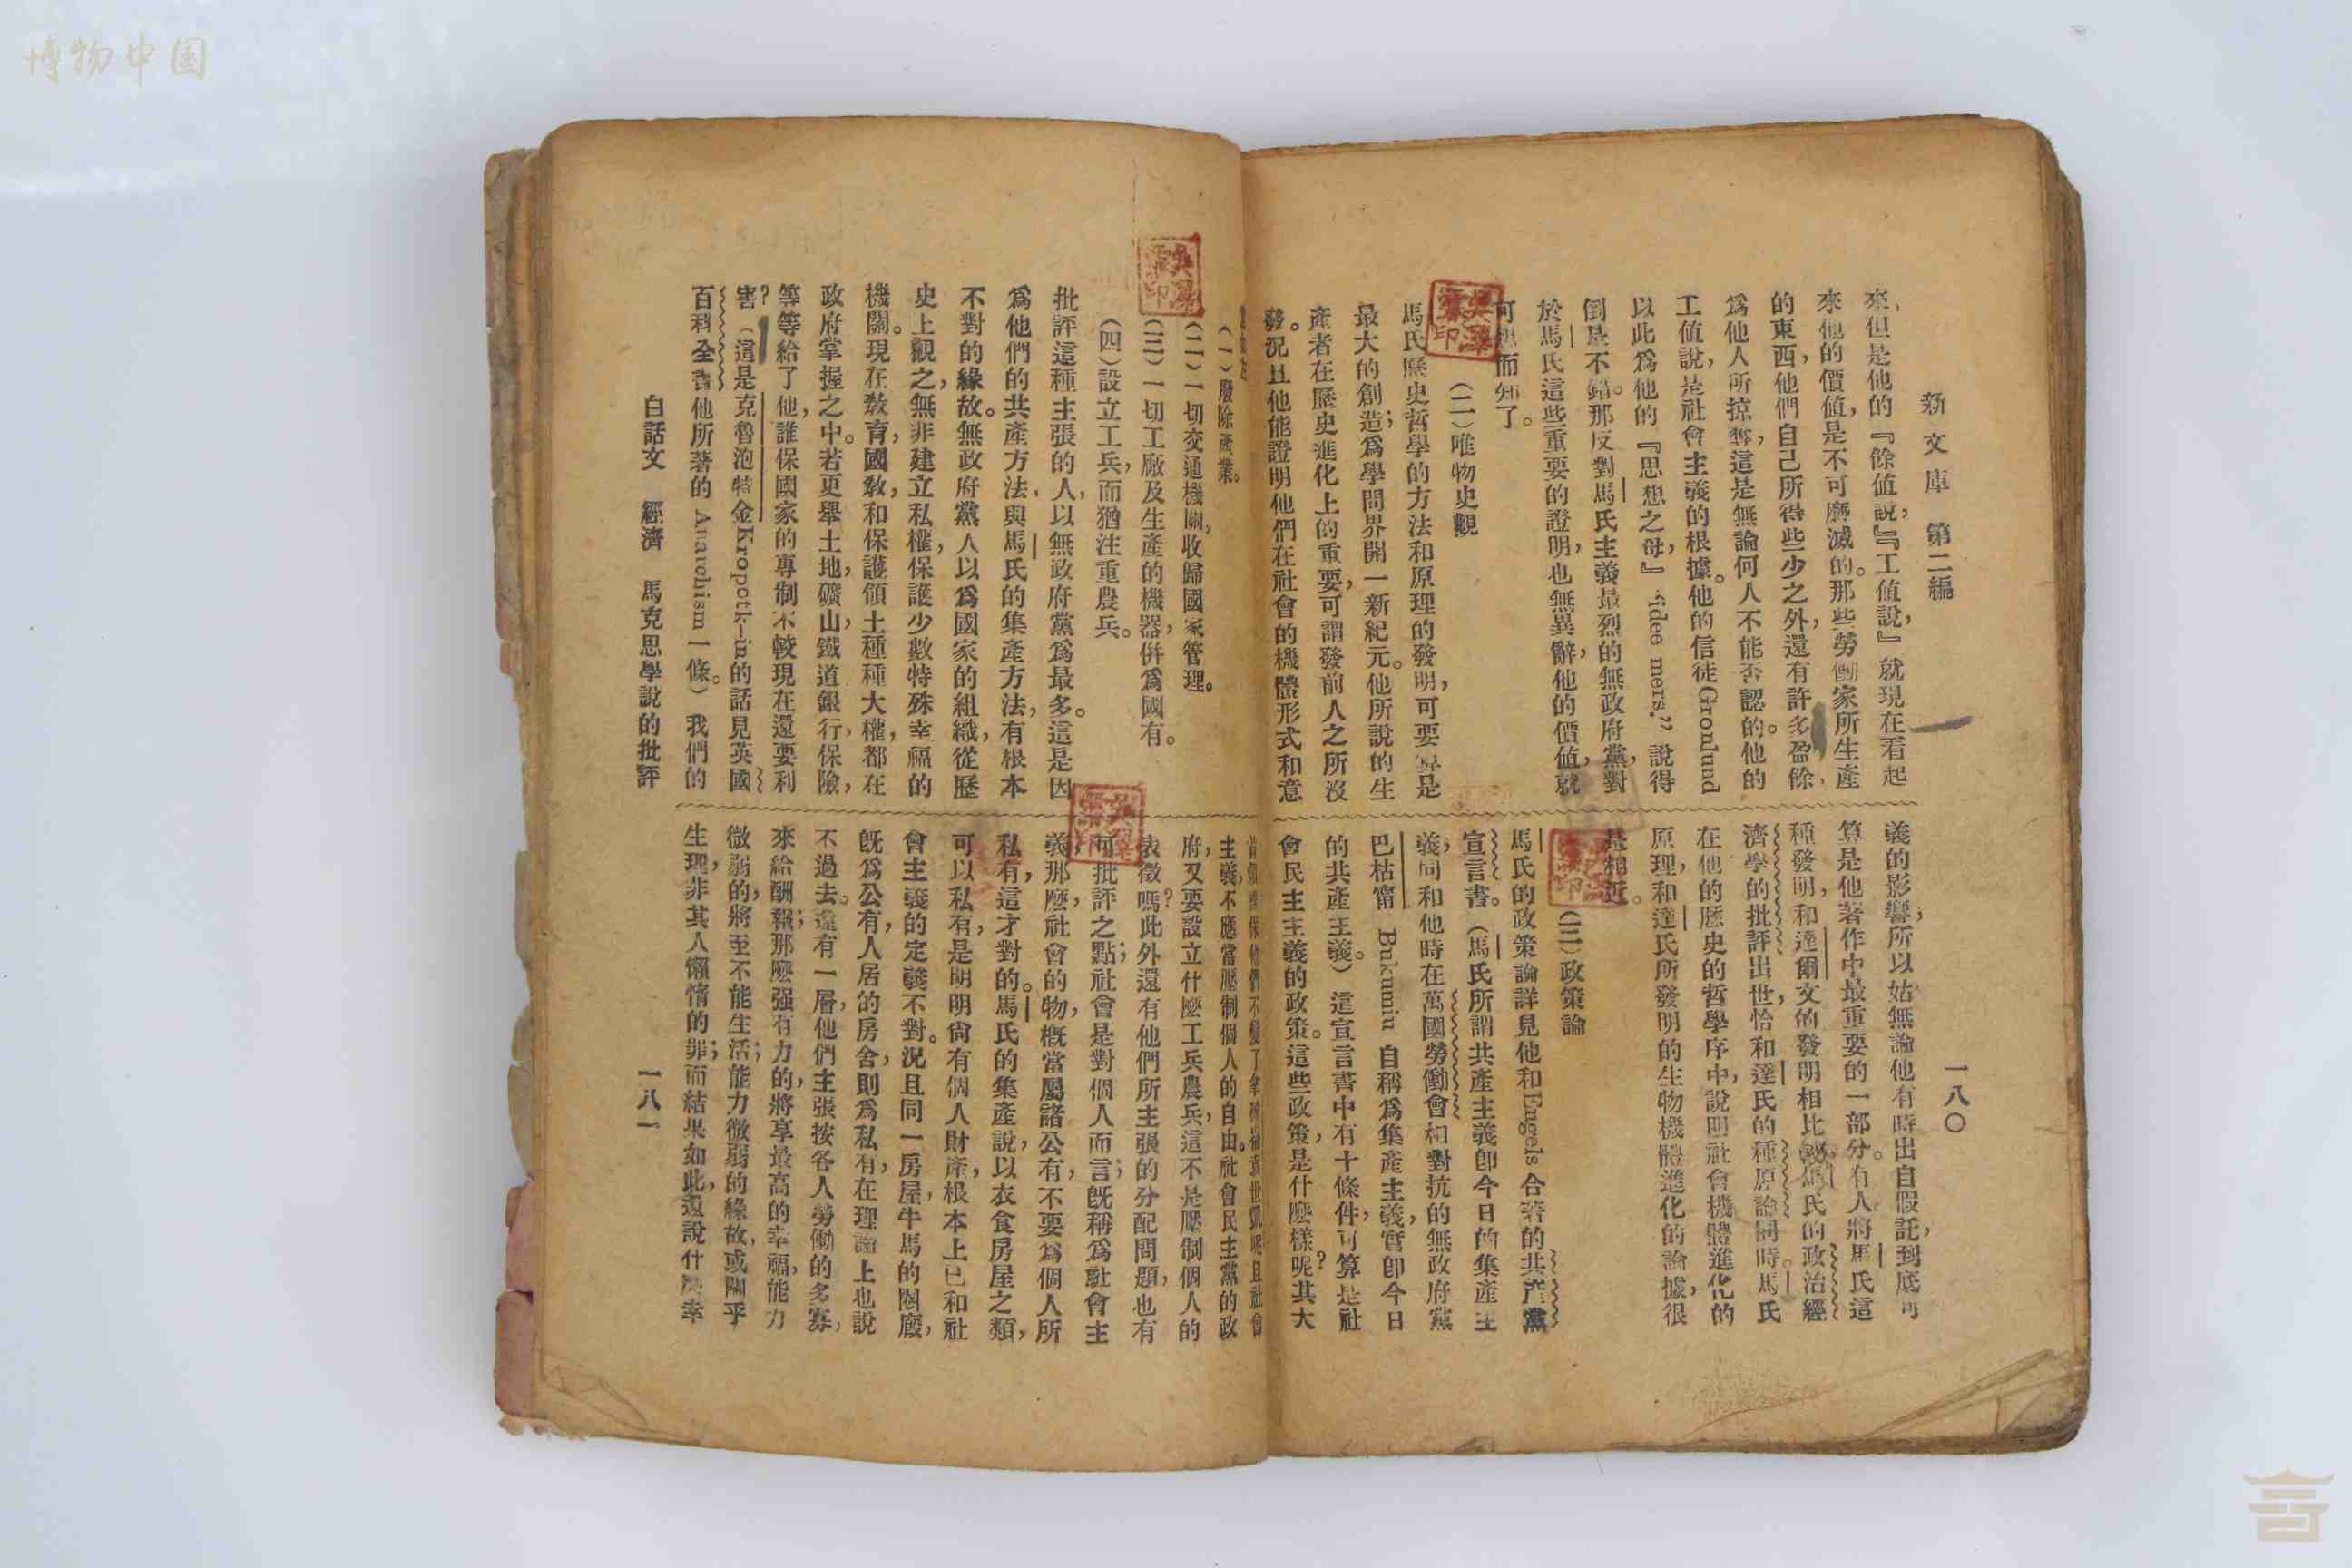 博物中国
新文庫 第二編
一八〇
來,但是他的『餘值說,』『工值說,』就現在看起
來他的價值,是不可磨滅的。那些勞働家所生產
的東西,他們自己所得些少之外,還有許多盈餘,
爲他人所掠奪,這是無論何人不能否認的。他的
工值說,是社會主義的根據。他的信徒Gronlund
以此爲他的『思想之母,』“idee mers.”說得
倒是不錯。那反對馬氏主義最烈的無政府黨,對
於馬氏這些重要的證明,也無異辭,他的價值,就
可想而知了。
(二)唯物史觀
馬氏歷史哲學的方法和原理的發明,可要算是
最大的創造;爲學問界開一新紀元。他所說的生
產者在歷史進化上的重要,可謂發前人之所沒
發。况且他能證明他們在社會的機體形式和意
義的影響,所以姑無論他有時出自假託,到底可
算是他著作中最重要的一部分。有人將馬氏這
種發明,和達爾文的發明相比較。馬氏的政治經
濟學的批評出世,恰和達氏的種原論同時。馬氏
在他的歷史的哲學序中,說明社會機體進化的
原理,和達氏所發明的生物機體進化的論據,很
其相近。
(三)政策論
馬氏的政策論詳見他和Engels合著的共产黨
宣言書。(馬氏所謂共產主義卽今日的集產主
義,同和他時在萬國勞働會相對抗的無政府黨
巴枯甯 Bukunin 自稱爲集產主義,實卽今日
的共產主義。)這宣言書中有十條件,可算是社
會民主主義的政策。這些政策,是什麽樣呢?其大
(一)廢除產業。
(二)一切交通機關,收歸國家管理。
(三)一切工廠及生產的機器,併爲國有。
(四)設立工兵,而猶注重農兵。
批評這種主張的人,以無政府黨爲最多。這是因
爲他們的共產方法,與馬氏的集產方法,有根本
不對的緣故。無政府黨人以爲國家的組織,從歷
史上觀之,無非建立私權,保護少數特殊幸福的
機關。現在敎育,國敎,和保護領土種種大權,都在
政府掌握之中。若更舉土地,礦山,鐵道銀行,保險,
等等給了他,誰保國家的專制不較現在還要利
害?(這是克魯泡特金Kropotk-in的話見英國
百科全書他所著的 Anarchism一條。)我們的
主義,不應當壓制個人的自由。社會民主黨的政
府,又要設立什麽工兵農兵,這不是壓制個人的
表徵嗎?此外還有他們所主張的分配問題,也有
可批評之點;社會是對個人而言;旣稱爲社會主
義,那麽,社會的物,槪當屬諸公有,不要爲個人所
私有,這才對的。馬氏的集產說,以衣食房屋之類,
可以私有,是明明尙有個人財產,根本上已和社
會主義的定義不對。況且同一房屋,牛馬的圈廄,
旣爲公有,人居的房舍,則爲私有,在理論上也說
不過去。還有一層,他們主張按各人勞働的多寡,
來給酬報;那麽强有力的,將享最高的幸福,能力
微弱的,將至不能生活;能力微弱的緣故,或關乎
生理,非其人懶惰的罪;而結果如此,還說什麽幸
白話文 經濟 馬克思學說的批評
一八一